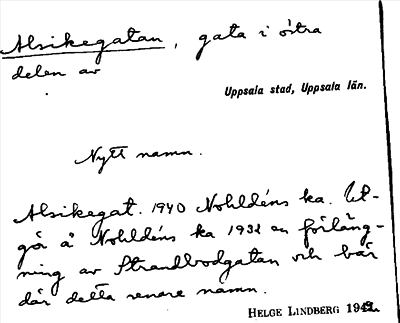 Alsikegatan, gata i östra
delen av
Uppsala stad, Uppsala län.
Nytt namn.
Alsikegat. 1940 Nohldéns ka. Ut-
gör å Nohldéns ka 1932 en förläng-
ning av Strandbodgatan och bär
där detta senare namn.
HELGE LINDBERG 1942.